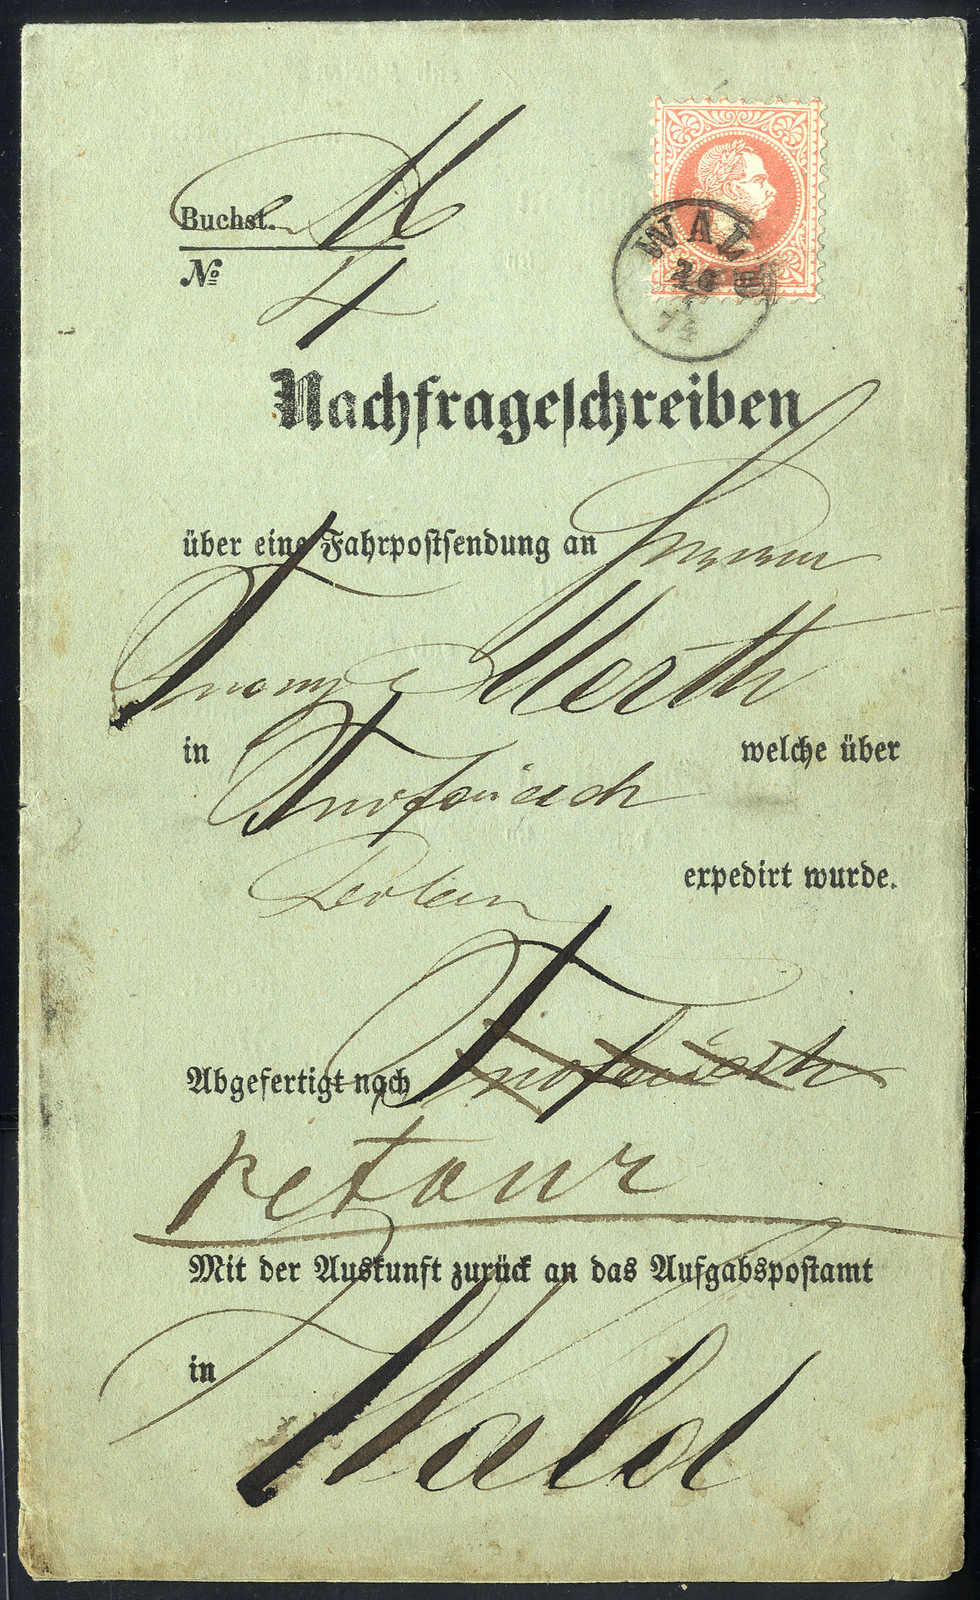 Buchst. M
№ 4
WAL
74
Nachfrageschreiben
über eine Fahrpostsendung an Herrn
Franz Merth
in Trofaiach welche über
Leoben expedirt wurde.
Abgefertigt nach Trofaiach
retour
Mit der Auskunft zurück an das Aufgabspostamt
in Wald